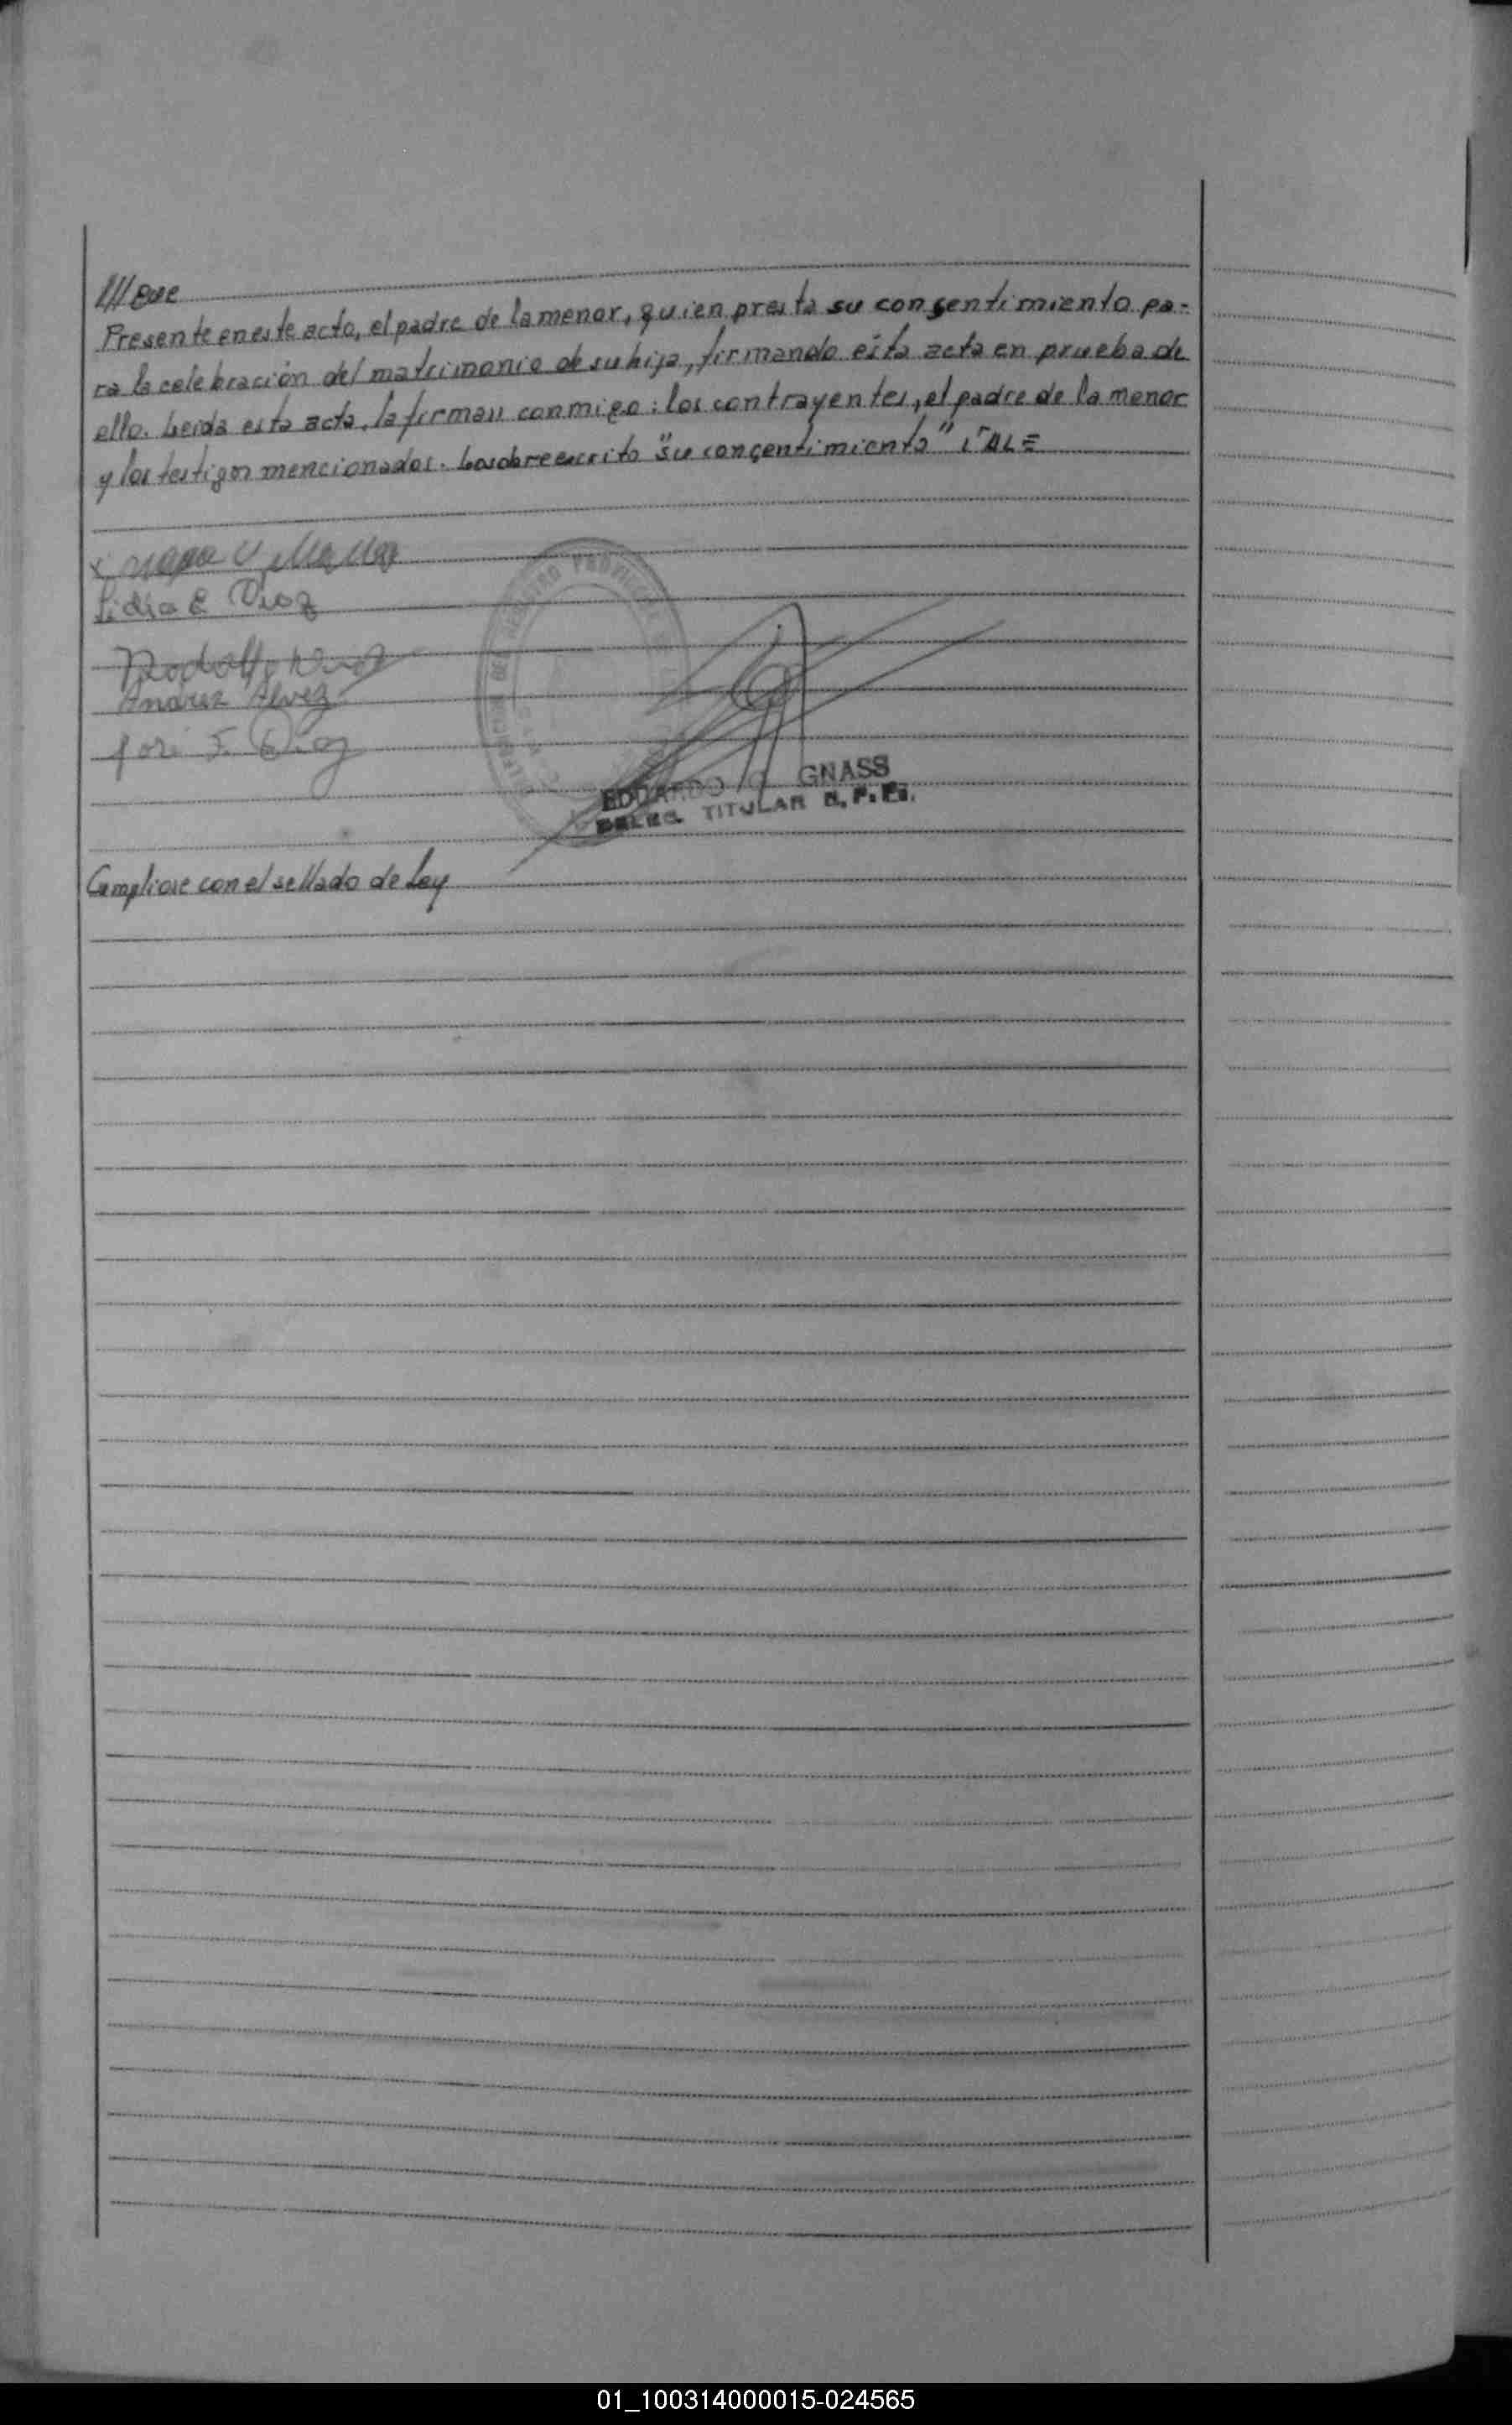 Presente en este acto, el padre de la menor, quien presta su consentimiento pa-
ra la celebración del matrimonio de su hija, firmando esta acta en prueba de
ello. Leida esta acta, la firman conmigo: los contrayentes, el padre de la menor
y los testigos mencionados. Lo sobreescrito "su consentimiento" VALE
Lidia E Diaz
Rodolfo
Andrez Alvez
José F. Diaz
DEL REGISTRO PROVINCIAL
EDUARDO GNASS
DELEG. TITULAR R. P. P.
Cumpliose con el sellado de Ley
01_100314000015-024565